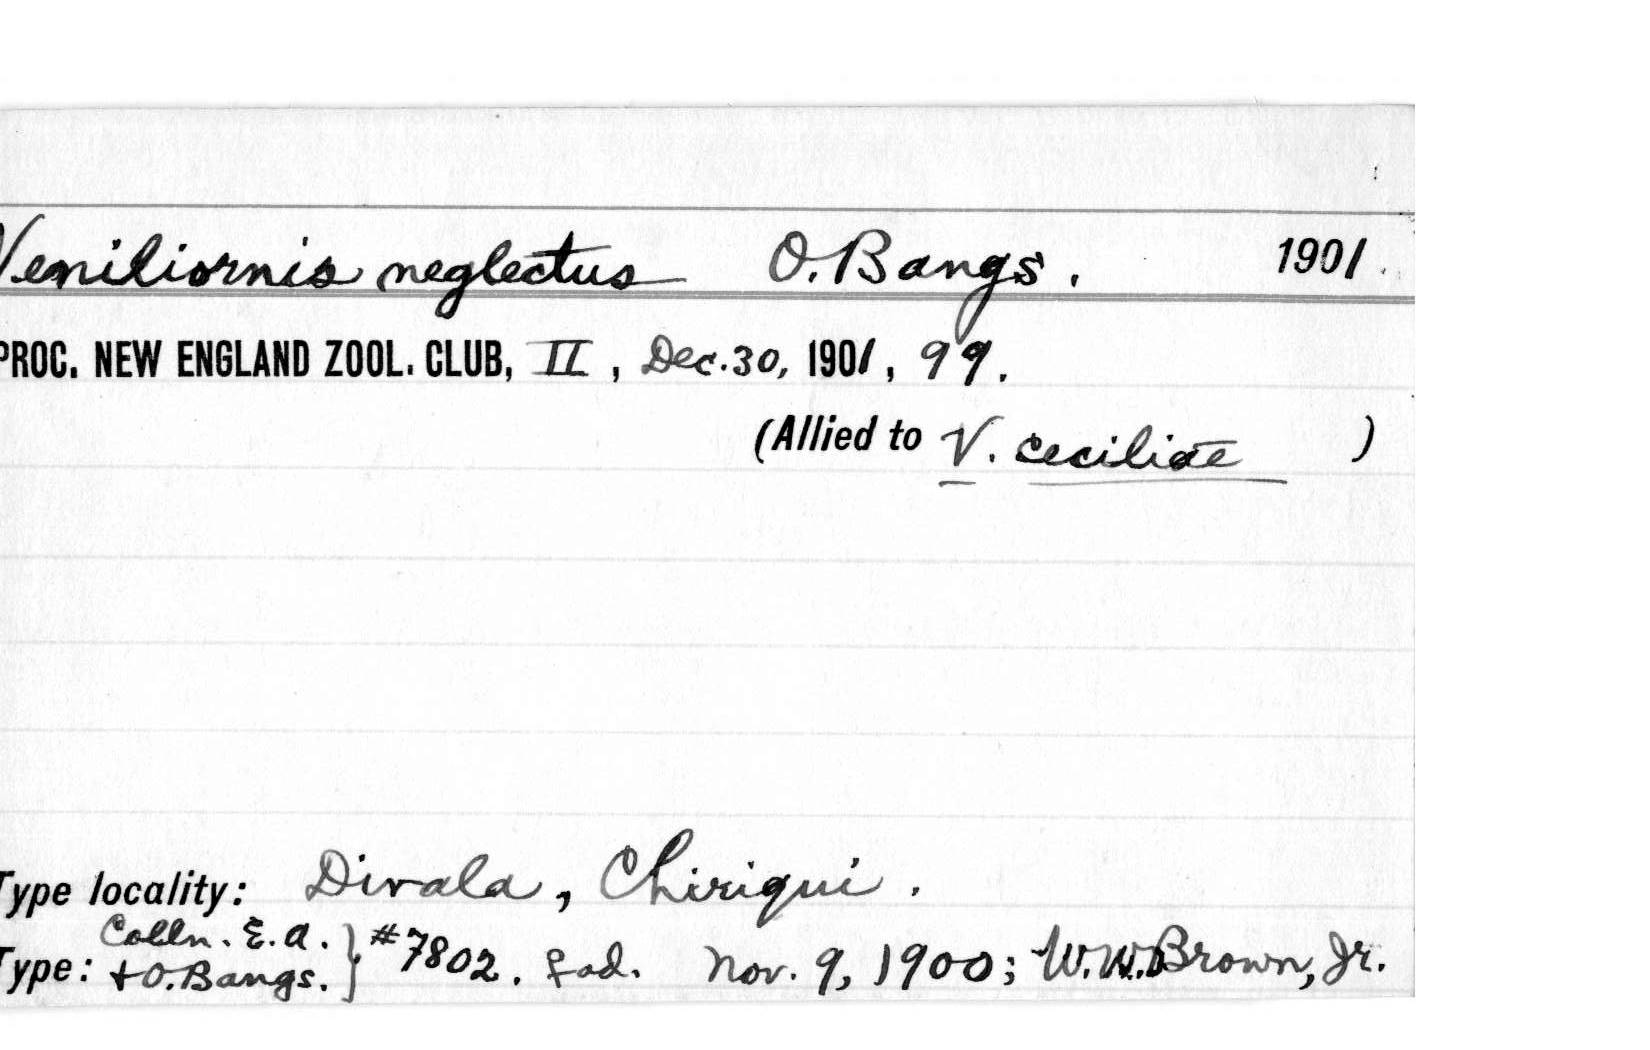 Veniliornis neglectus O. Bangs. 1901
PROC. NEW ENGLAND ZOOL. CLUB, II, Dec. 30, 1901, 99.
(Allied to V. ceciliae )
Type locality: Divala, Chiriqui.
Colln. E.A.
Type: + O. Bangs. } #7802. ♀ ad. Nov. 9, 1900; W.W. Brown, Jr.